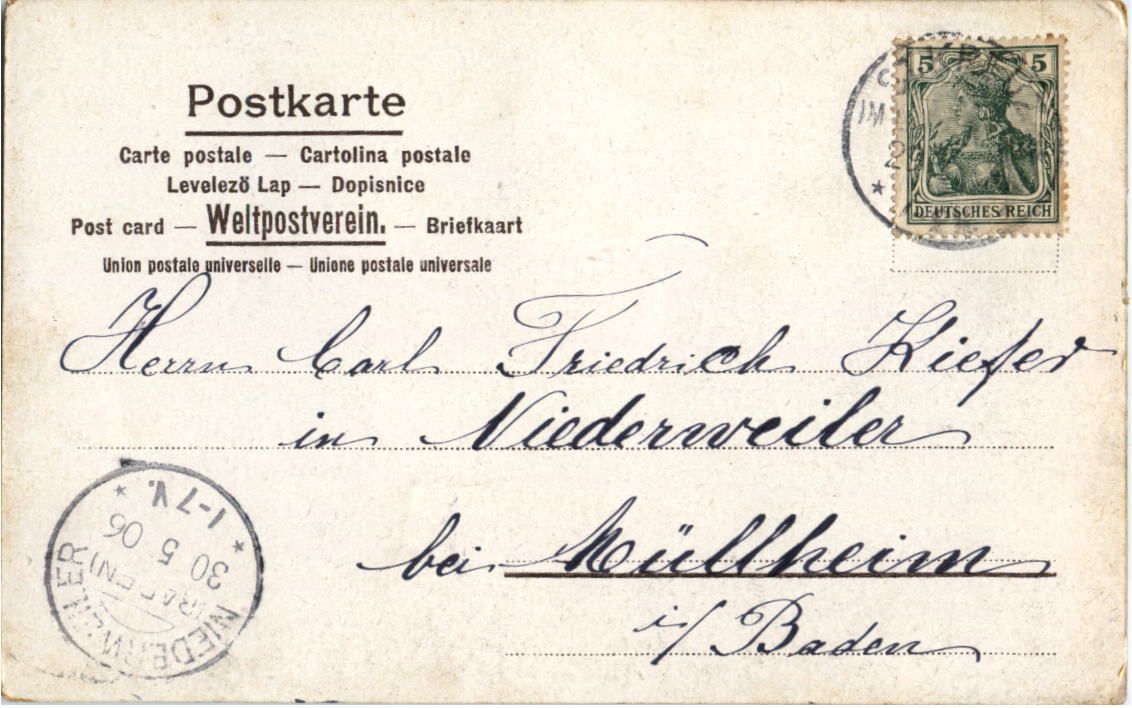 Postkarte
Carte postale — Cartolina postale
Levelező Lap — Dopisnice
Post card — Weltpostverein. — Briefkaart
Union postale universelle — Unione postale universale
5 5
DEUTSCHES REICH
IM
Herrn Carl Friedrich Kiefer
in Niederweiler
bei Müllheim
i/ Baden
NIEDERWEILER
(BADEN)
30 5 06
1-7 N.